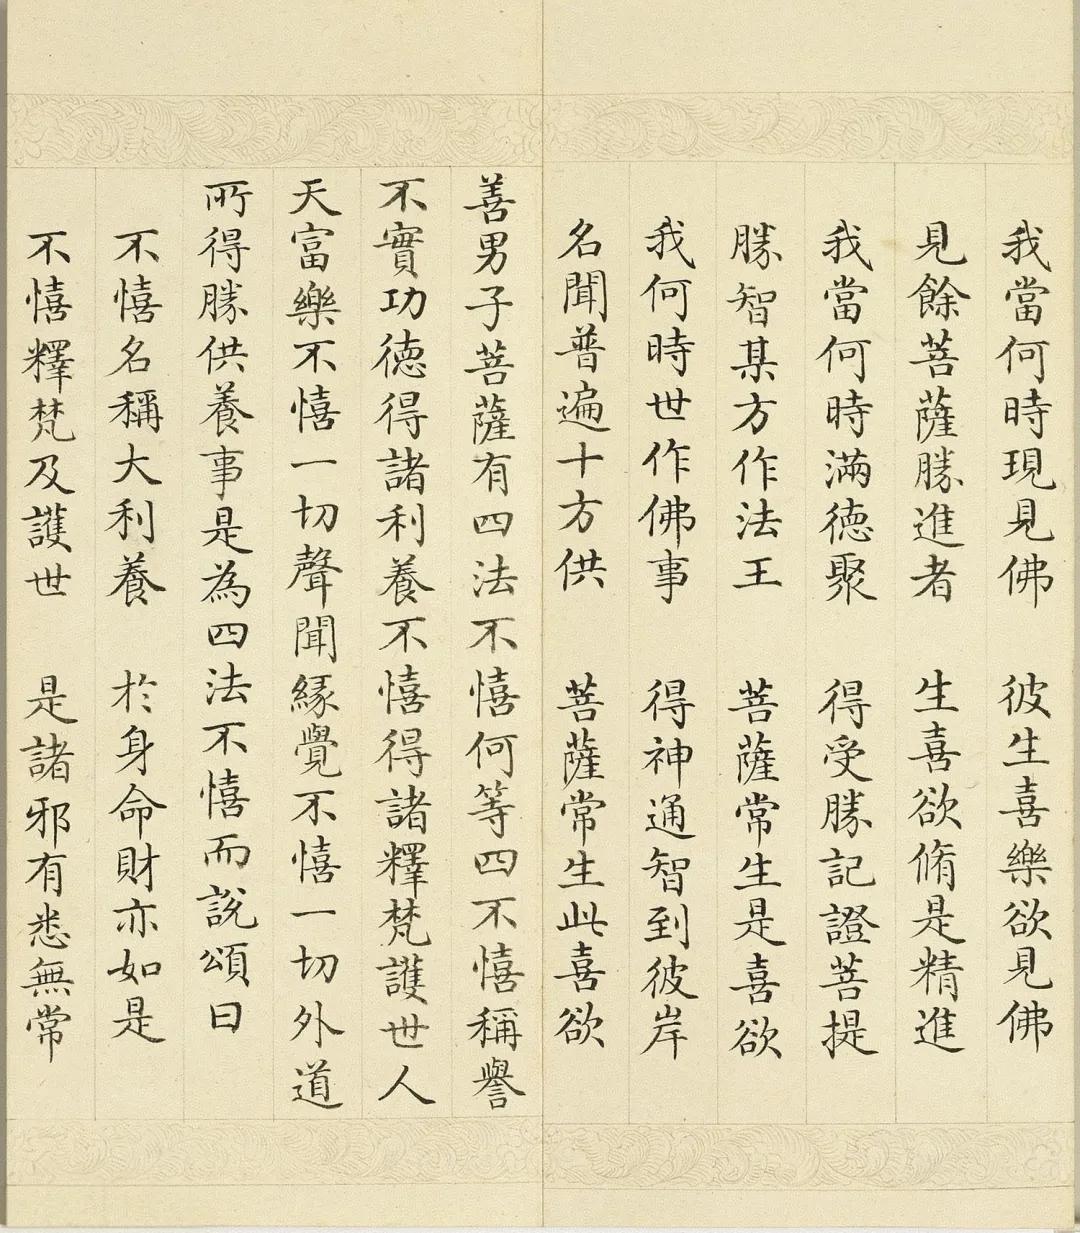 我當何時現見佛　彼生喜樂欲見佛
見餘菩薩勝進者　生喜欲脩是精進
我當何時滿德聚　得受勝記證菩提
勝智某方作法王　菩薩常生是喜欲
我何時世作佛事　得神通智到彼岸
名聞普遍十方供　菩薩常生此喜欲
善男子菩薩有四法不憘何等四不憘稱譽
不實功德得諸利養不憘得諸釋梵護世人
天富樂不憘一切聲聞緣覺不憘一切外道
所得勝供養事是為四法不憘而說頌曰
不憘名稱大利養　於身命財亦如是
不憘釋梵及護世　是諸邪有悉無常